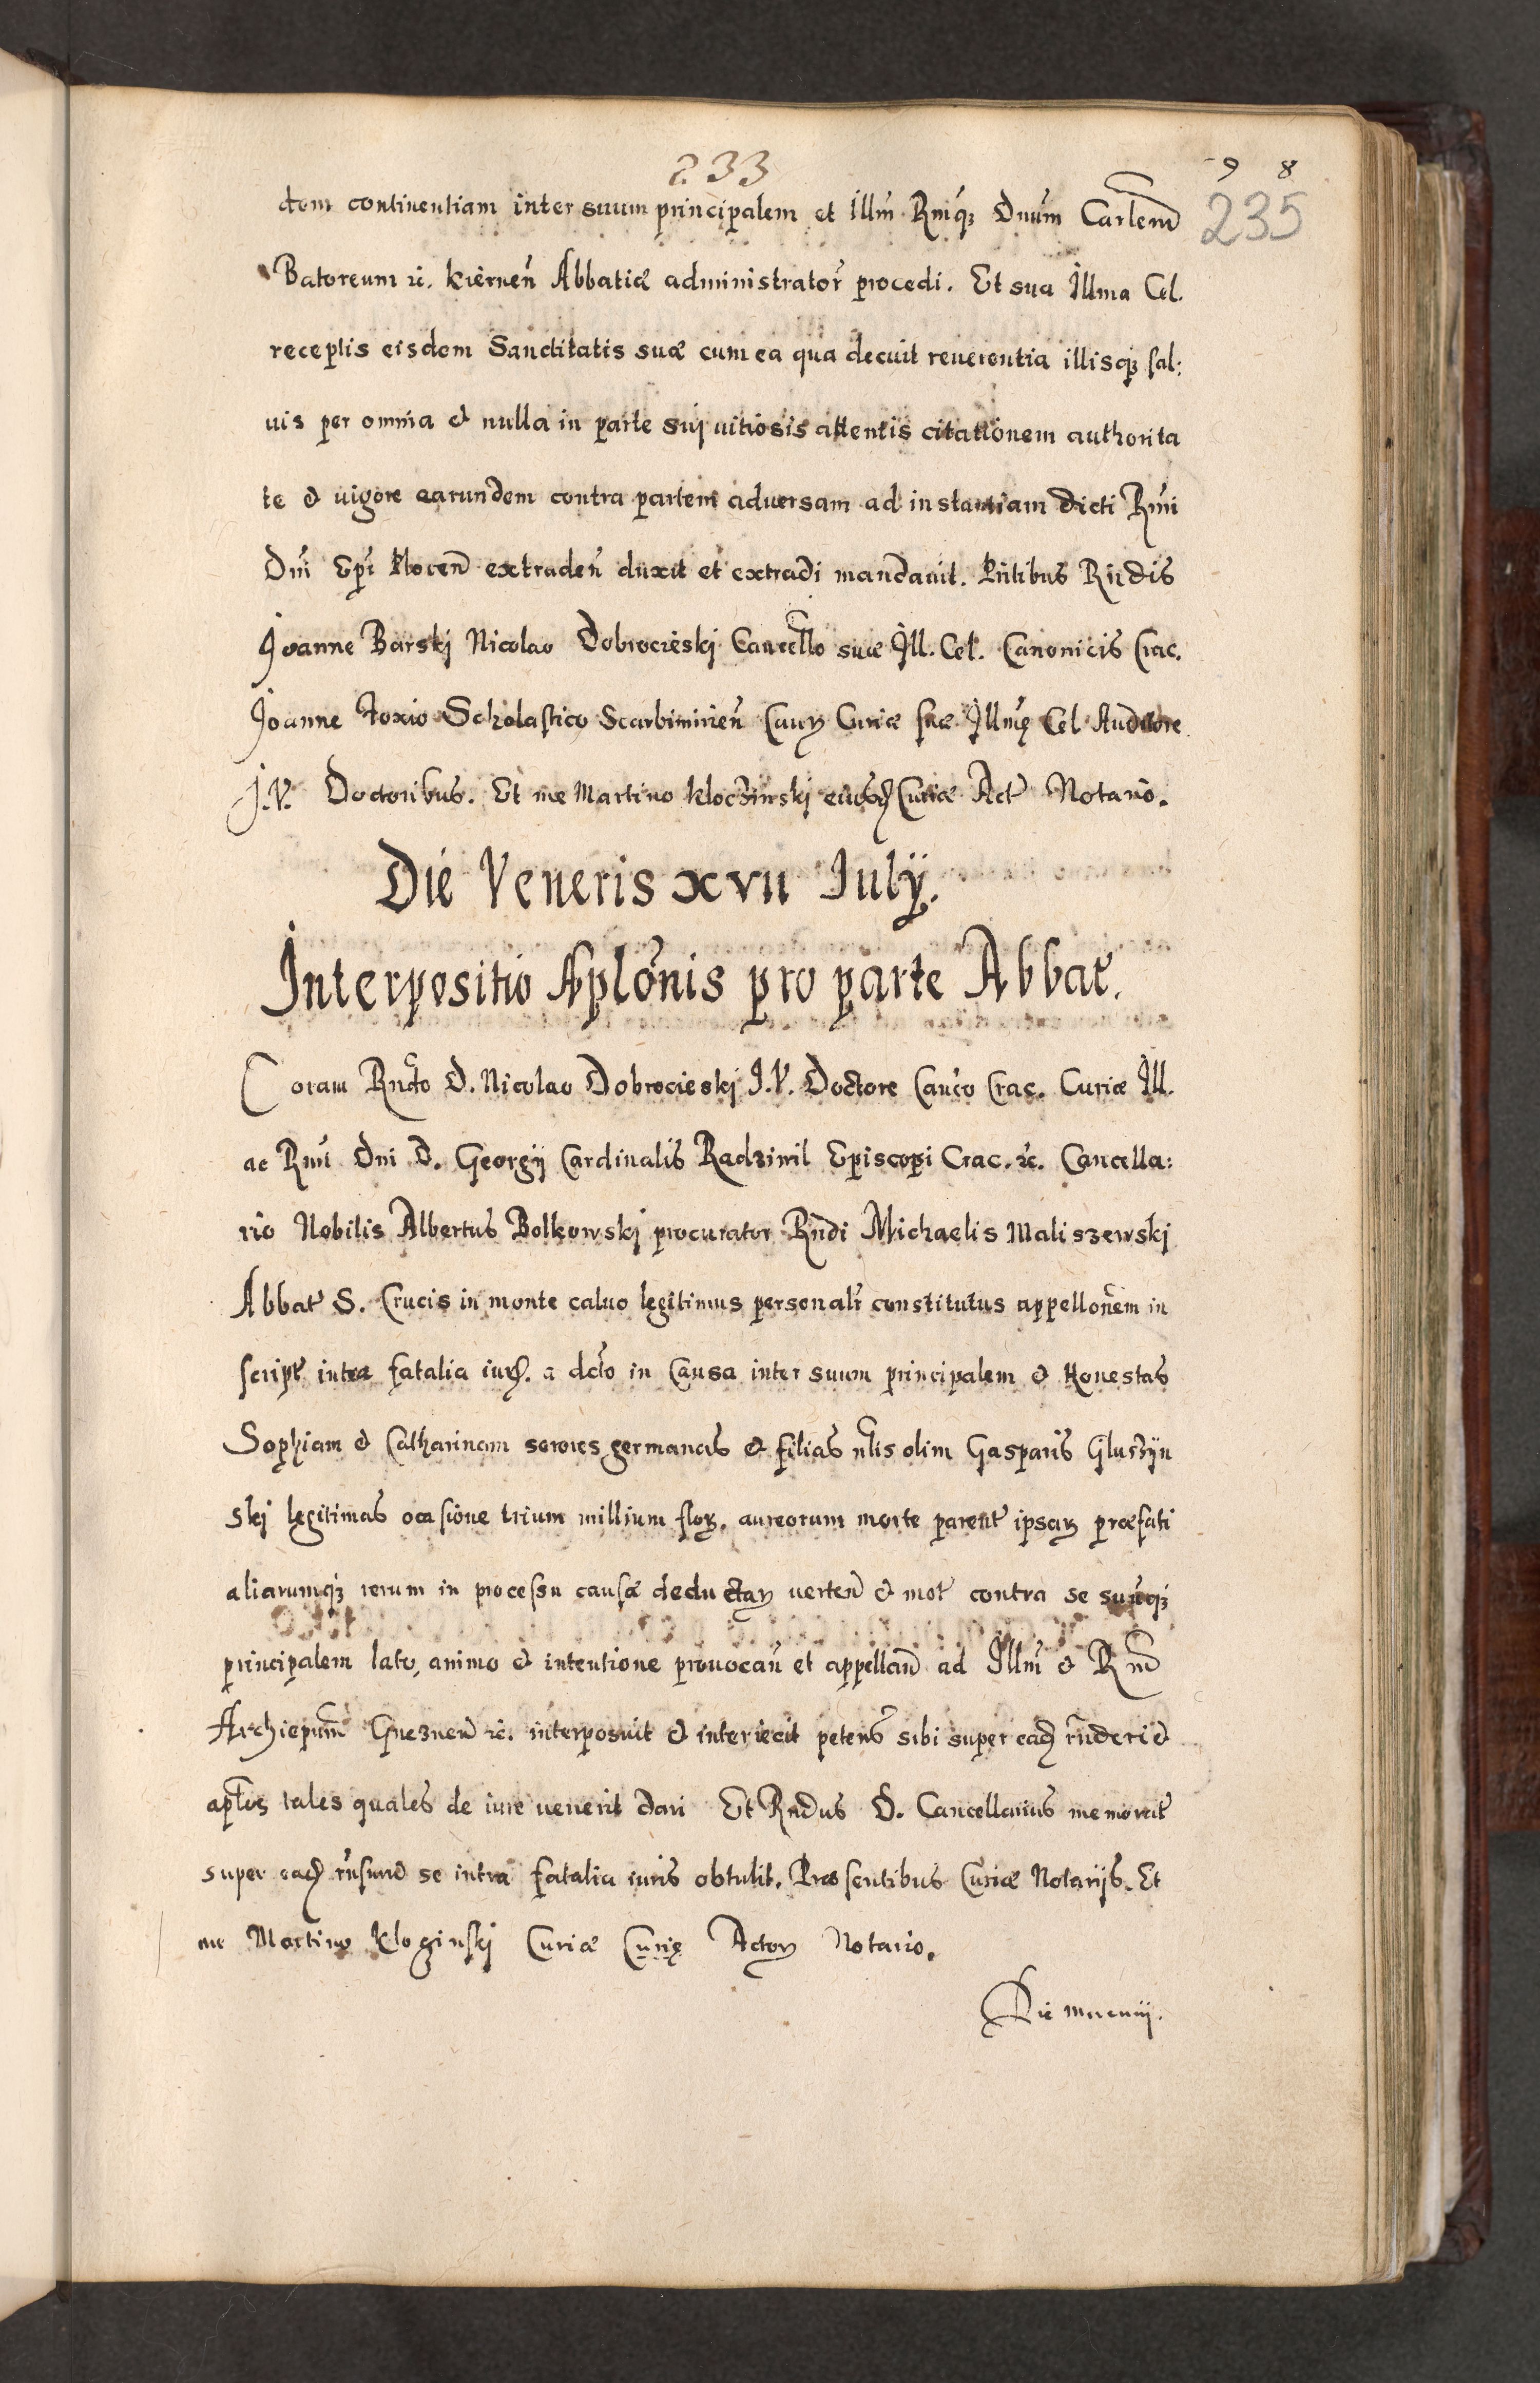 233
9 8
235
dem continentiam inter suum principalem et Illm̃ Rm̃q3 Dnũm Carlem̃
Batoreum rc. Abbatiæ administrator̃ procedi. Et sua Illma Cel.
receptis eisdem Sanctitatis suæ cum ea qua decuit reverentia illisq3 sal:
uis per omnia & nulla in parte suj vitiosis attentis citationem authorita
te & vigore earundem contra partem adversam ad instantiam dicti Rm̃i
Dnĩ Epĩ Plocen̄ extraden̄ duxit et extradi mandavit. Pñtibus Rñdis
Joanne Barskj Nicolao Dobrocieskj Cancello suæ Ill. Cel. Canonicis Crac.
Joanne Foxio Scholastico Scarbimirien̄ Curiæ suæ Illmę Cel Auditore
J.V. Doctoribus. Et me Martino Kloczinskj eiusd Curiæ Act Notario.
Die Veneris xvii Julÿ.
Interpositio Aplõnis pro parte Abbat.
Coram Rndo D. Nicolao Dobrocieskj J.V. Doctore Canco Crac. Curiæ Ill.
ac Rm̃i Dni D. Georgij Cardinalis Radziwil Episcopi Crac. rc. Cancella:
rio Nobilis Albertus Bolkowskj procurator Rndi Michaelis Maliszewskj
Abbat S. Crucis in monte caluo legitimus personalr constitutus appellonem in
script intra fatalia iur. a dcto in Causa inter suum principalem & Honestas
Sophiam & Catharinam sorores germanas & filias nlis olim Gasparis Gluszÿn
skj legitimas ocasione trium millium flor. aureorum morte parent ipsar præfati
aliarumq3 rerum in processu causæ deductar verten̄ & mot contra se suũq3
principalem lato, animo & intentione provocan̄ et appellan̄ ad Illm̃ & Rm̃
Archiepum̃ Gneznen̄ rc. interposuit & interiecit petens sibi super ead rnderi &
aplos tales quales de iure venerit dari Et Rndus D. Cancellarius memorat
super ead rñsurũ se intra fatalia iuris obtulit. Præsentibus Curiæ Notarijs. Et
me Martino Kloginskj Curiæ Actor Notario.
Die